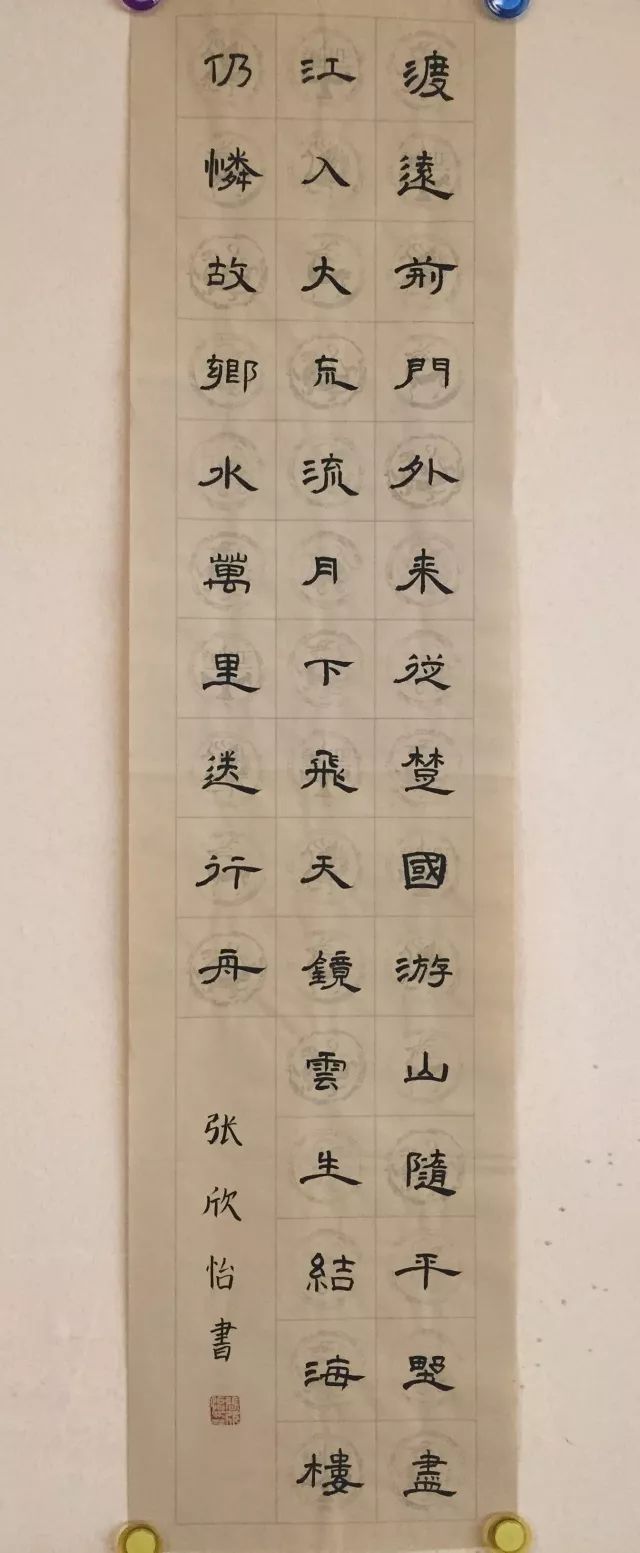 渡遠荊門外来従楚國游山隨平野盡
江入大荒流月下飛天鏡雲生結海樓
仍憐故鄉水萬里送行舟
张欣怡書